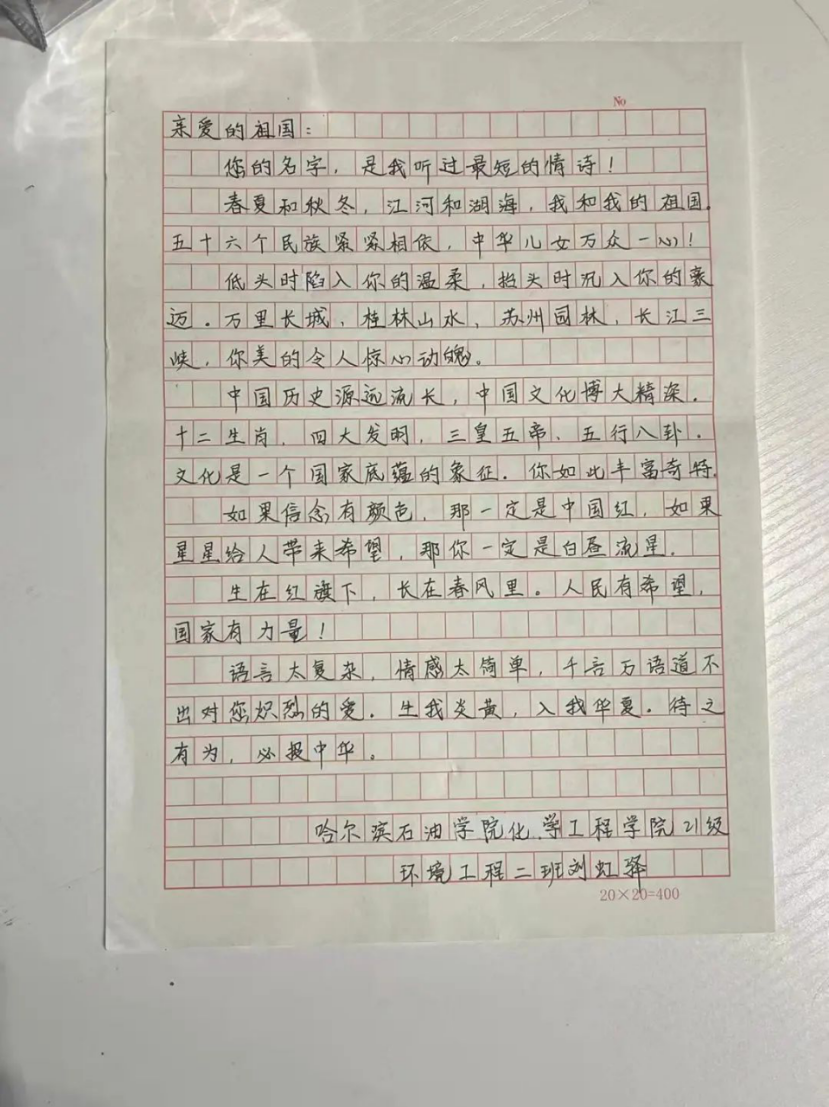 No
亲爱的祖国:
您的名字,是我听过最短的情诗!
春夏和秋冬,江河和湖海,我和我的祖国.
五十六个民族紧紧相依,中华儿女万众一心!
低头时陷入你的温柔,抬头时沉入你的豪
迈.万里长城、桂林山水、苏州园林,长江三
峡,你美的令人惊心动魄。
中国历史源远流长,中国文化博大精深.
十二生肖、四大发明,三皇五帝、五行八卦.
文化是一个国家底蕴的象征.你如此丰富奇特.
如果信念有颜色,那一定是中国红,如果
星星给人带来希望,那你一定是白昼流星.
生在红旗下,长在春风里。人民有希望,
国家有力量!
语言太复杂,情感太简单,千言万语道不
出对您炽烈的爱.生我炎黄,入我华夏.待之
有为,必报中华。
哈尔滨石油学院化学工程学院21级
环境工程二班刘虹驿
20×20=400